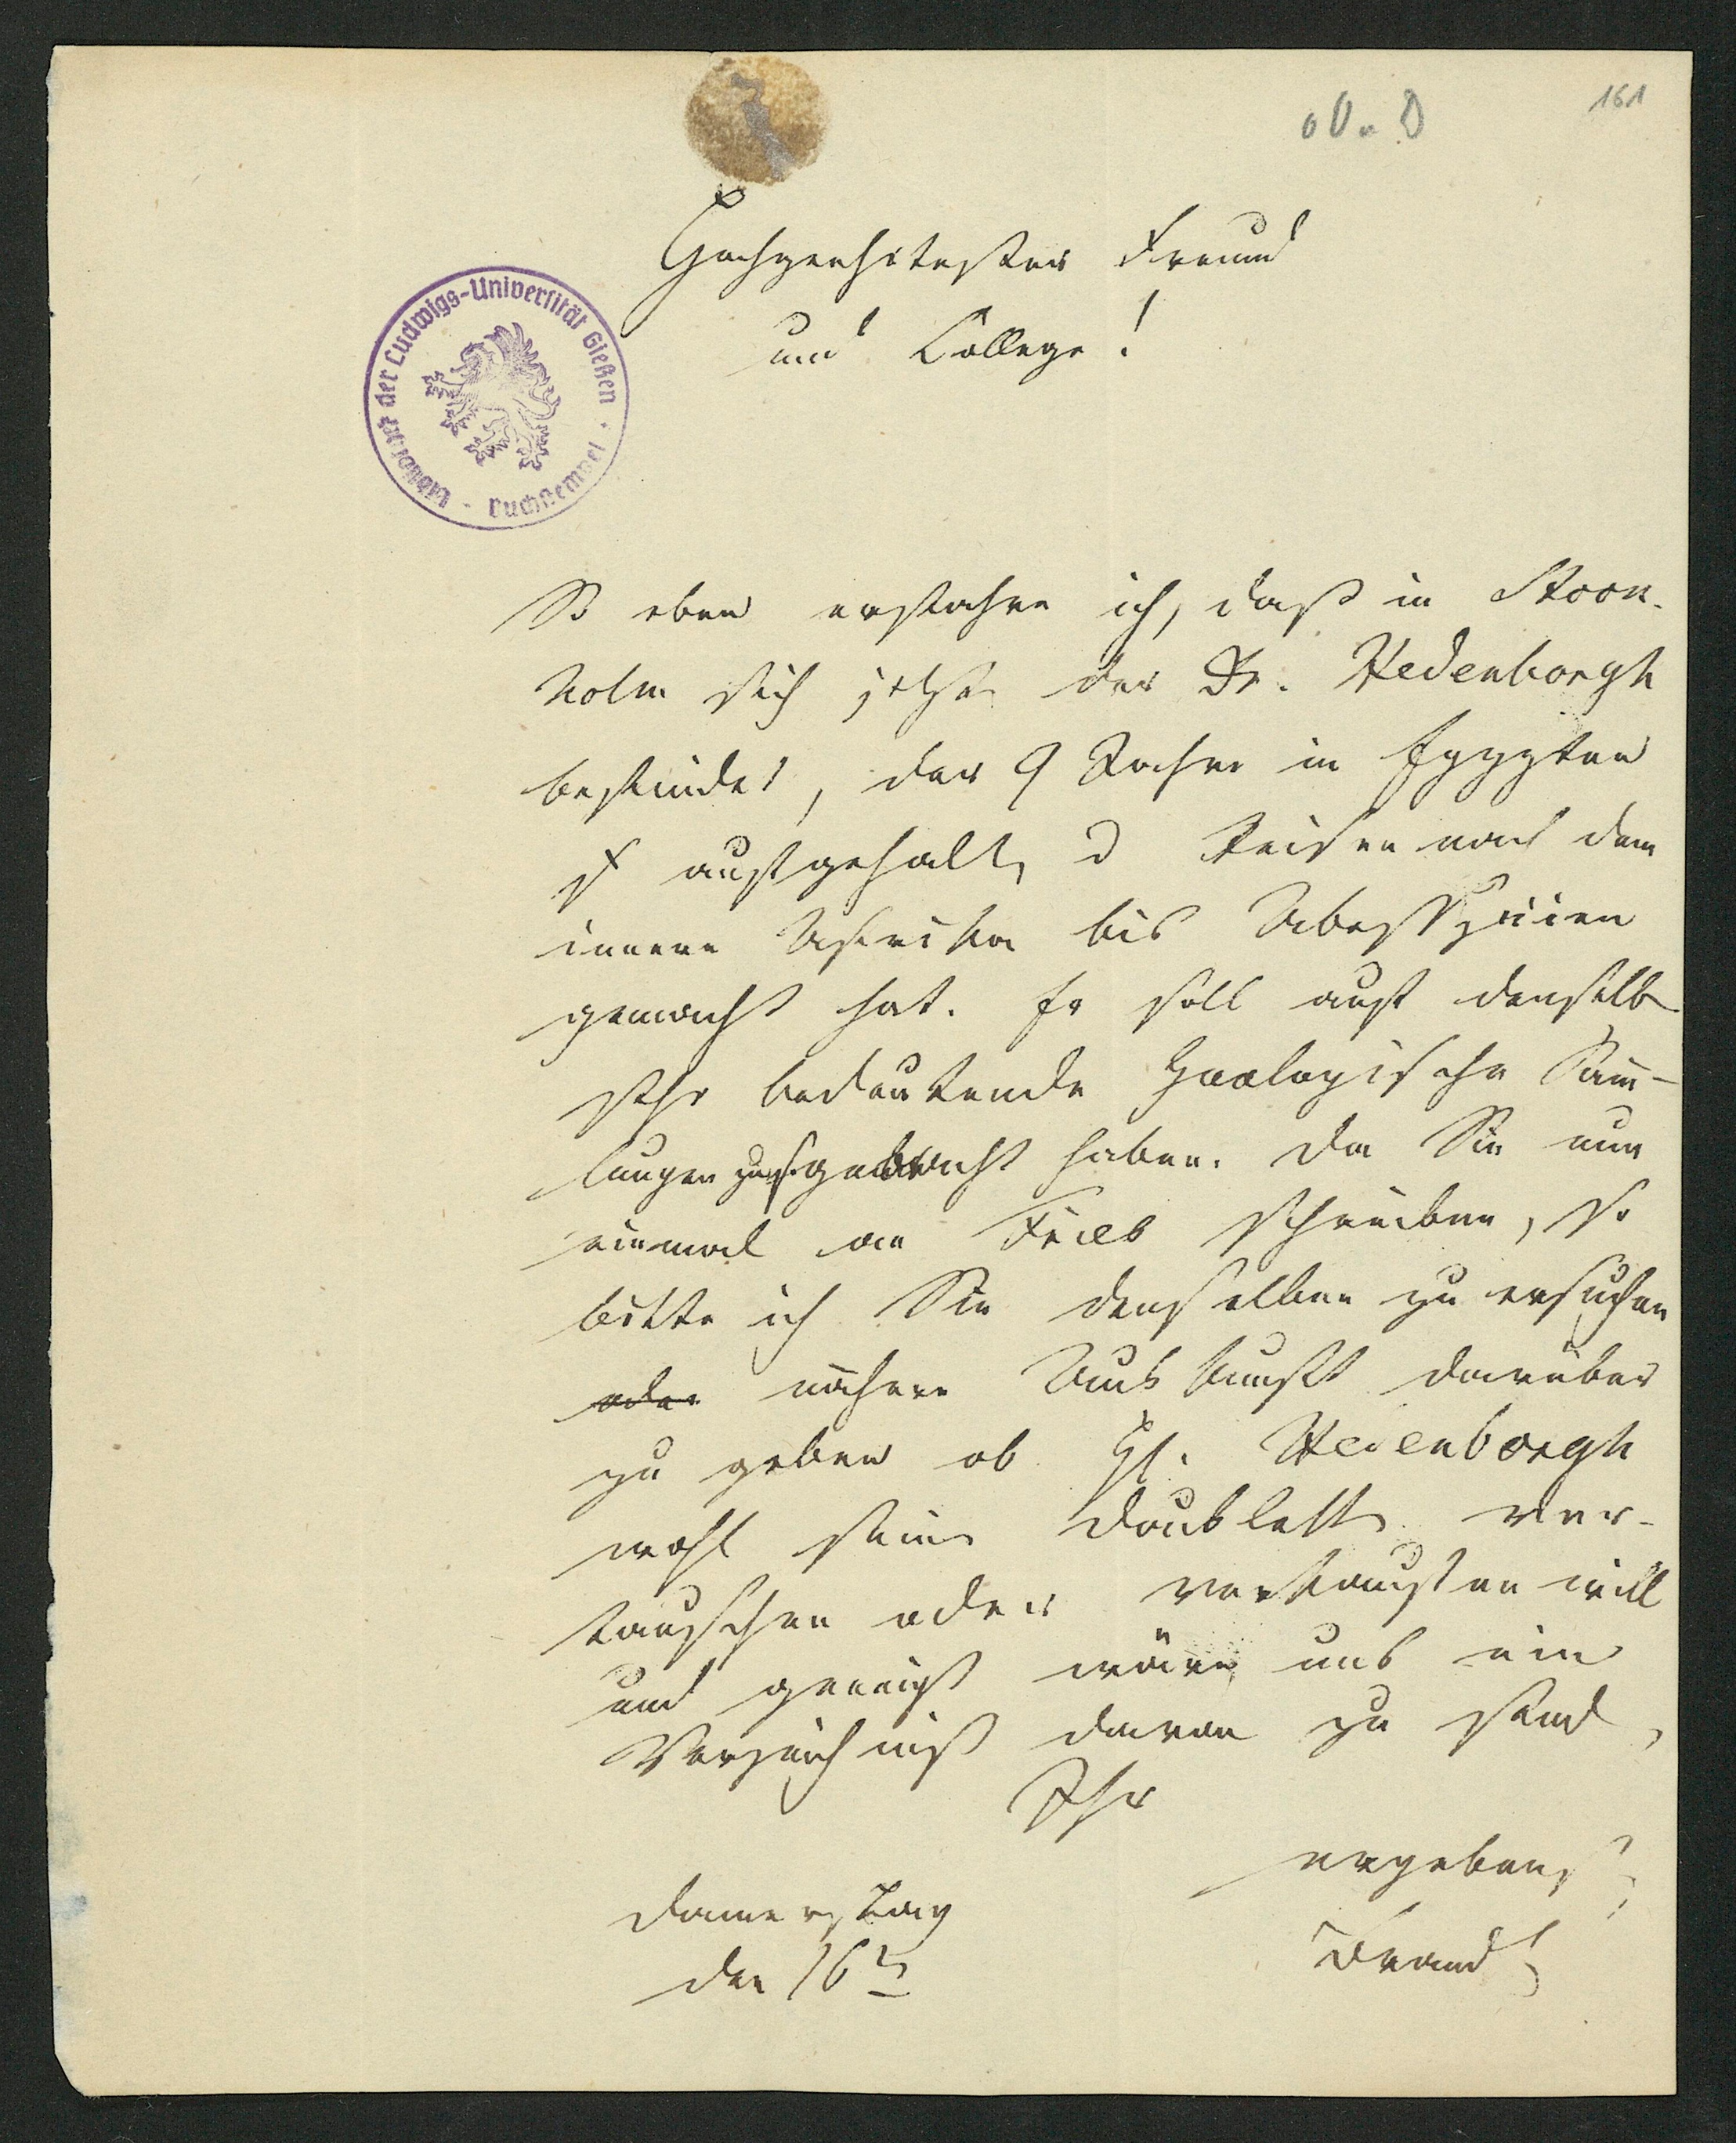 161
o O. D
Hochgeehrtester Freund
und College!
Bibliothek der Ludwigs-Universität Gießen · Buchstempel ·
So eben erfahre ich, daß in Stock-
holm sich jetzt der Dr. Hedenborgh
befindet, der 9 Jahre in Egypten
sich aufgehalten u Reisen nach dem
innern Afrika bis Abessynien
gemacht hat. Er soll auf denselben
sehr bedeutende Zoologische Sam-
lungen gebracht haben. Da Sie nun
einmal an Fries schreiben, so
bitte ich Sie denselben zu ersuchen
oder nähere Auskunft darüber
zu geben ob H. Hedenborgh
wohl seine Doubletten ver-
tauschen oder verkaufen will
und geneigt wäre uns ein
Verzeichniß davon zu senden
Ihr
ergebenst
Donnerstag
Brandt
den 16ten